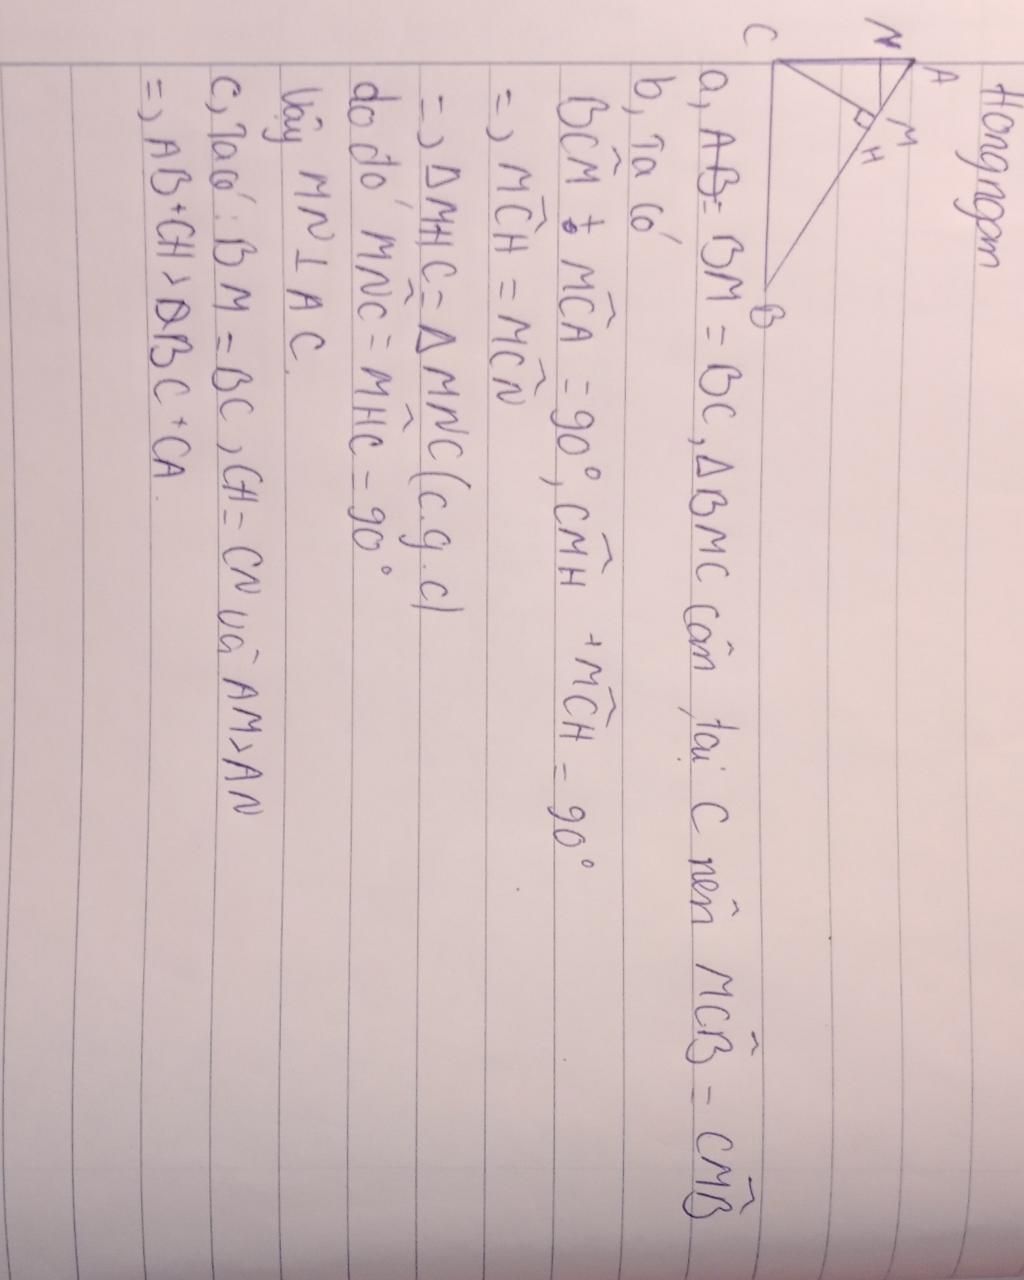 Hongngom
C
N
A
M
H
B
a, AB= BM = BC, ΔBMC cân tại C nên MĈB = CM̂B
b, Ta có
BĈM + MĈA = 90°, CM̂H + MĈH = 90°
=, MĈH = MĈN
=, ΔMHC = ΔMNC (c.g.c)
do đó MN̂C = MĤC = 90°
Vậy MN ⊥ AC.
c, Ta có: BM = BC, CH = CN và AM > AN
=, AB + CH > BC + CA.